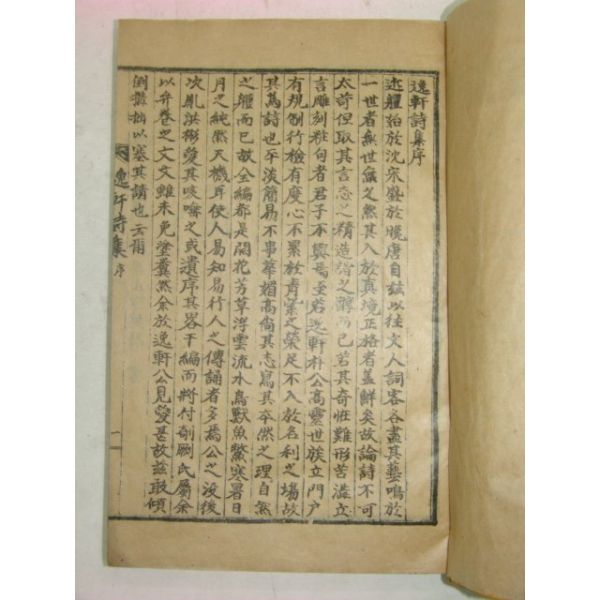 逸軒詩集序
近體始於沈宋盛於晚唐自玆以往文人詞客各盡其藝鳴於
一世者無世無之然其入於真境正格者盖鮮矣故論詩不可
太苛但取其言志之精造語之醇而已若其奇恠難形苦澁立
言雕刻粧句者君子不與焉至若逸軒朴公高靈世族立門户
有規制行檢有度心不累於青紫之榮足不入於名利之場故
其爲詩也平淡簡易不事華楣高尙其志寫其卒然之理自然
之體而已故全編都是閒花芳草浮雲流水鳥獸魚鱉寒暑日
月之純然天機耳使人易知易行人之傳誦者多焉公之沒後
次胤洪彬變其咳唾之或潰序其畧于編而將付剞劂氏屬余
以弁卷之文文雖未免塗糞然余於逸軒公見愛甚故玆敢傾
倒攡拙以塞其請也云爾
逸軒詩集
序
一